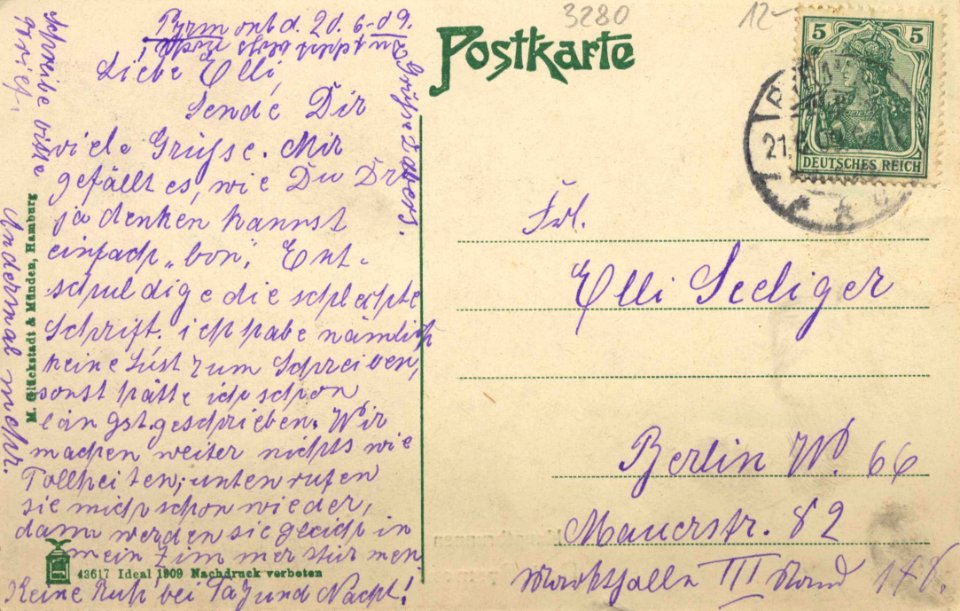 Pyrmont d. 20. 6. 09.
Liebe Elli,
Sende Dir
viele Grüsse. Mir
gefällt es, wie Du Dir
ja denken kannst
einfach „bon“, Ent-
schuldige die schlechte
Schrift. ich habe nämlich
keine Lust zum Schreiben,
sonst hätte ich schon
längst geschrieben. Wir
machen weiter nichts wie
Tollheiten; unten rufen
sie mich schon wieder,
dann werden sie gleich in
mein Zimmer stürmen
Keine Ruh bei Tag und Nacht!
Andermal mehr.
schreibe bitte
Grüsse
M. Glückstadt & Münden, Hamburg
43617 Ideal 1909 Nachdruck verboten
Postkarte
3280
12-
5 5
DEUTSCHES REICH
21.
Frl.
Elli Seeliger
Berlin W. 66
Mauerstr. 82
Markthalle III Stand 148.